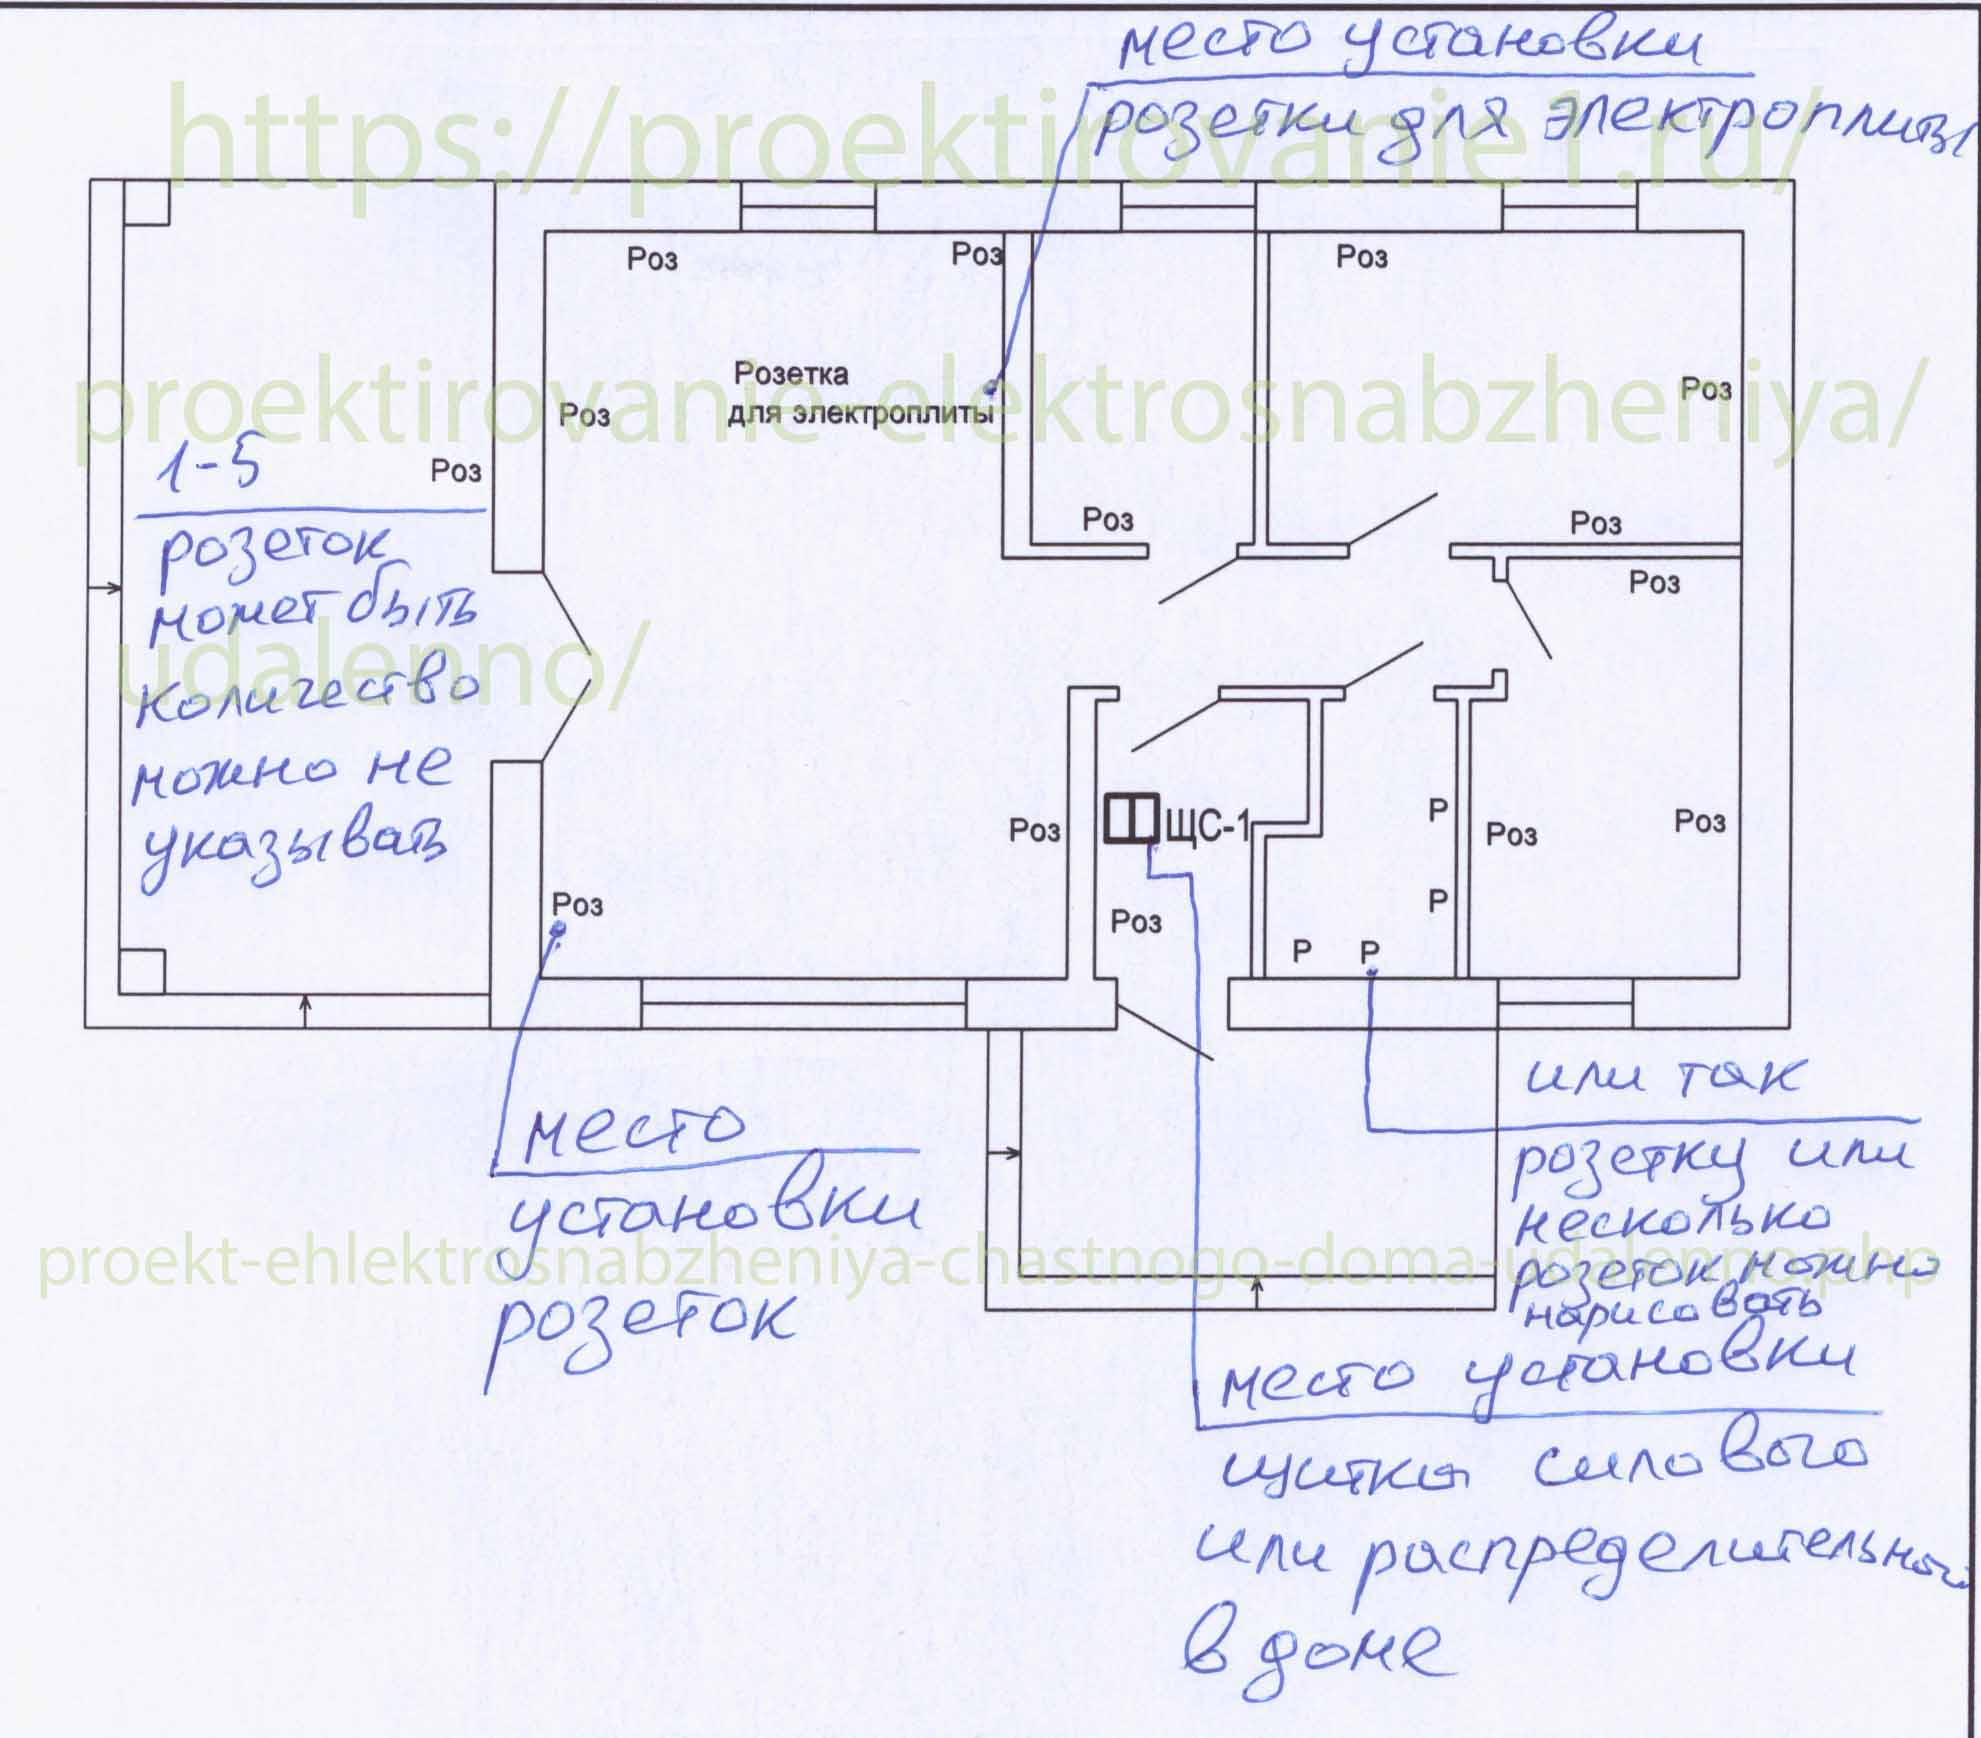 место установки
розетки для электроплиты
https://proektirovanie1.ru/
Роз
Роз
Роз
Розетка
для электроплиты
proektirovanie-elektrosnabzheniya/
Роз
Роз
1-5
Роз
розеток
может быть
количество
можно не
указывать
Роз
Роз
Роз
udalenno/
Роз
ЩС-1
Р
Роз
Роз
Роз
Роз
Р
Р
Р
место
установки
розеток
или так
розетку или
несколько
розеток можно
нарисовать
proekt-ehlektrosnabzheniya-chastnogo-doma-udalenno.php
место установки
щитка силового
или распределительного
в доме